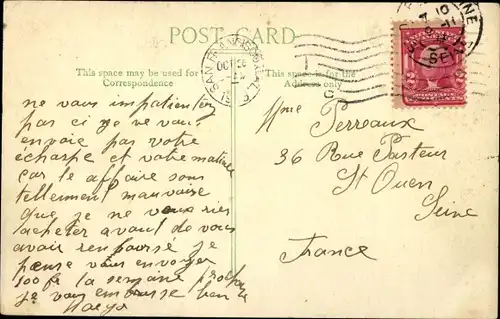 POST CARD
This space may be used for
Correspondence
This space is for the
Address only
ne vous impatientez
pas ci je ne vous
envoie pas votre
écharpe et votre matinée
car le affaire sous
tellement mauvaise
que je ne veux rien
acheter avant de vous
avoir remboursé je
pense vous envoyer
100 fr la semaine prochaine
je vous embrasse bien
Mme Perreaux
36 Rue Pasteur
St Ouen
Seine
France